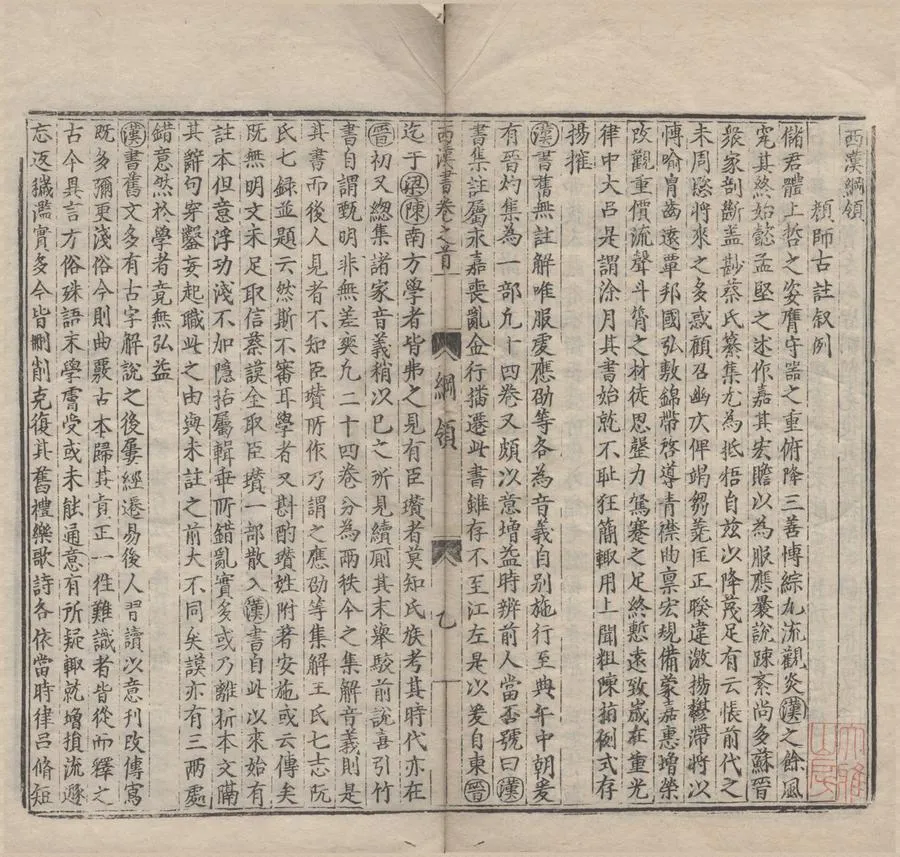 西漢綱領
顏師古註叙例
儲君體上哲之姿膺守器之重俯降三善博綜九流觀炎漢之餘風
究其終始懿孟堅之述作嘉其宏贍以為服應曩說踈紊尚多蘇晉
衆家剖斷盖尠蔡氏纂集尤為抵牾自兹以降蔑足有云悵前代之
未周愍將來之多惑顧召幽仄俾竭芻蕘匡正睽違激揚欝滯將以
博喻胄齒遠覃邦國弘敷錦帶啓導青襟曲禀宏規備蒙嘉惠増榮
改觀重價流聲斗筲之材徒思罄力駑蹇之足終慙遠致歲在重光
律中大吕是謂涂月其書始就不耻狂簡輙用上聞粗陳指例式存
揚搉
漢書舊無註解唯服虔應劭等各為音義自别施行至典午中朝爰
有晉灼集為一部凢十四卷又頗以意增益時辨前人當否號曰漢
書集註屬永嘉喪亂金行播遷此書雖存不至江左是以爰自東晉
西漢書卷之首
綱領
乙
迄于梁陳南方學者皆弗之見有臣瓚者莫知氏族考其時代亦在
晉初又緫集諸家音義稍以已之所見續厠其末舉駁前說喜引竹
書自謂甄明非無差爽凢二十四卷分為兩秩今之集解音義則是
其書而後人見者不知臣瓚所作乃謂之應劭等集解王氏七志阮
氏七録並題云然斯不審耳學者又斟酌瓚姓附著安施或云傳矣
既無明文未足取信蔡謨全取臣瓚一部散入漢書自此以來始有
註本但意浮功淺不加隱括屬輯乖舛錯亂實多或乃離析本文隔
其辭句穿鑿妄起職此之由與未註之前大不同矣謨亦有三兩處
錯意然於學者竟無弘益
漢書舊文多有古字解說之後屢經遷易後人習讀以意刊改傳寫
既多彌更淺俗今則曲覈古本歸其真正一徃難識者皆從而釋之
古今異言方俗殊語末學膚受或未能通意有所疑輙就増損流遯
忘返穢濫實多今皆刪削克復其舊禮樂歌詩各依當時律吕脩短